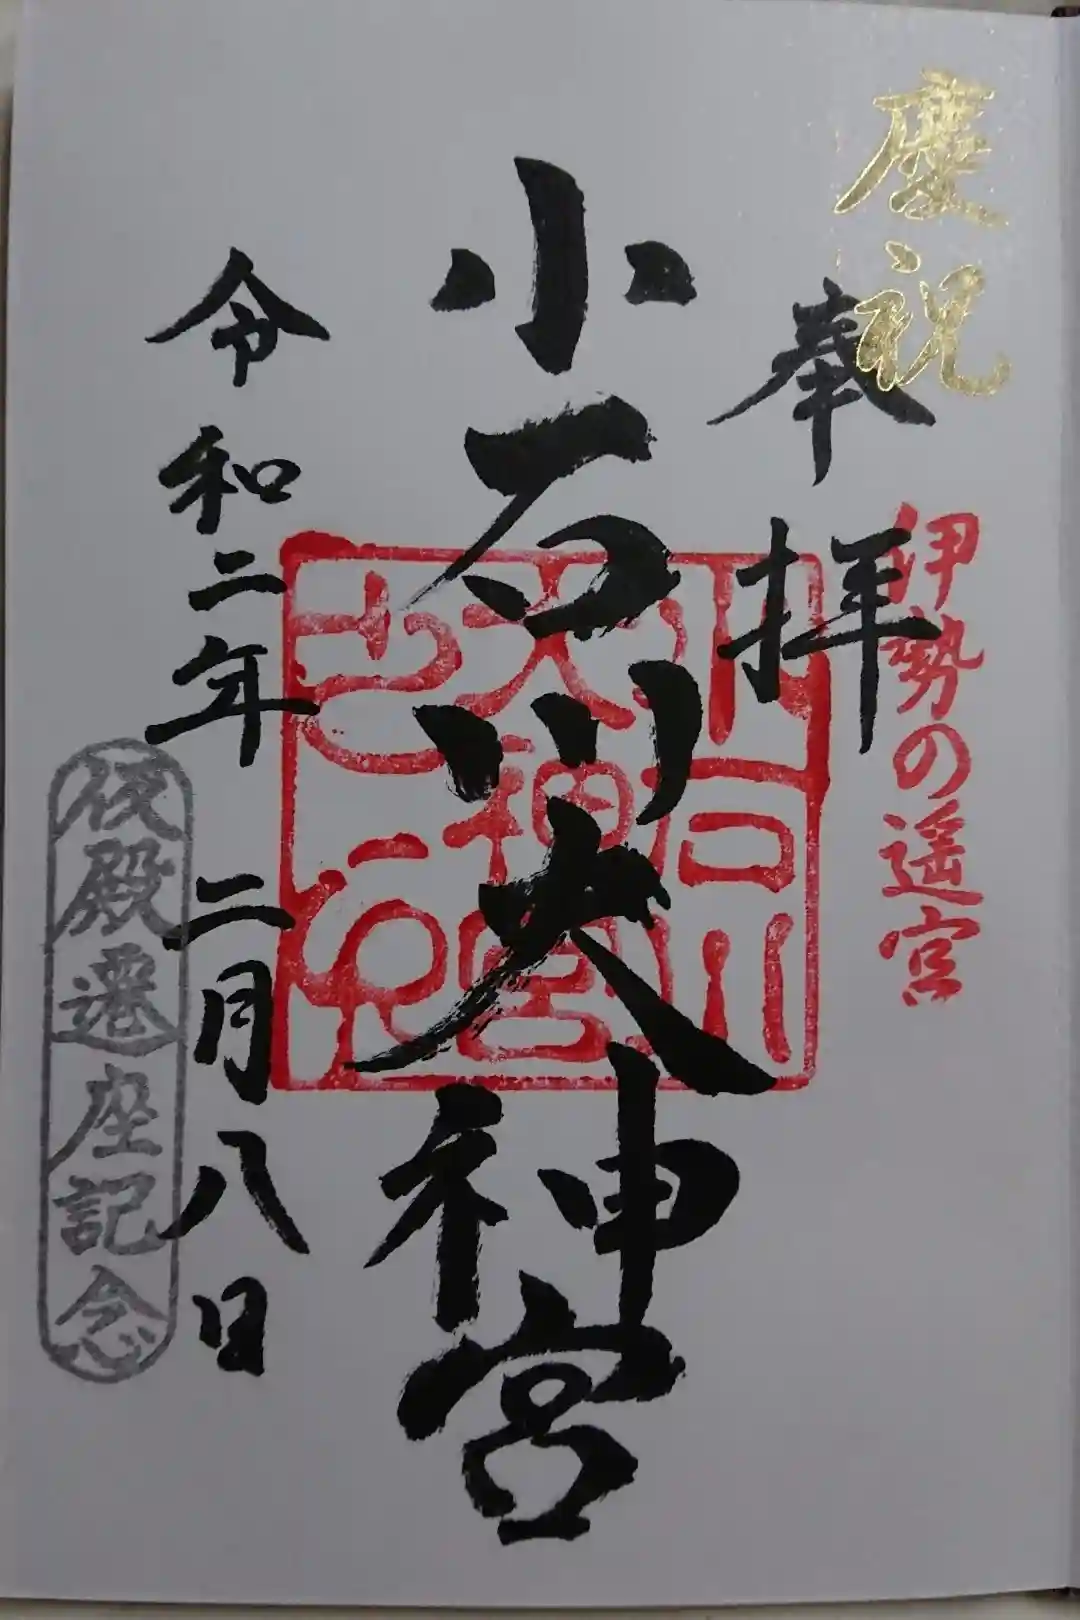 慶祝
奉拝
伊勢の遥宮
小石川大神宮
小石川
大神宮
令和二年 二月八日
仮殿遷座記念